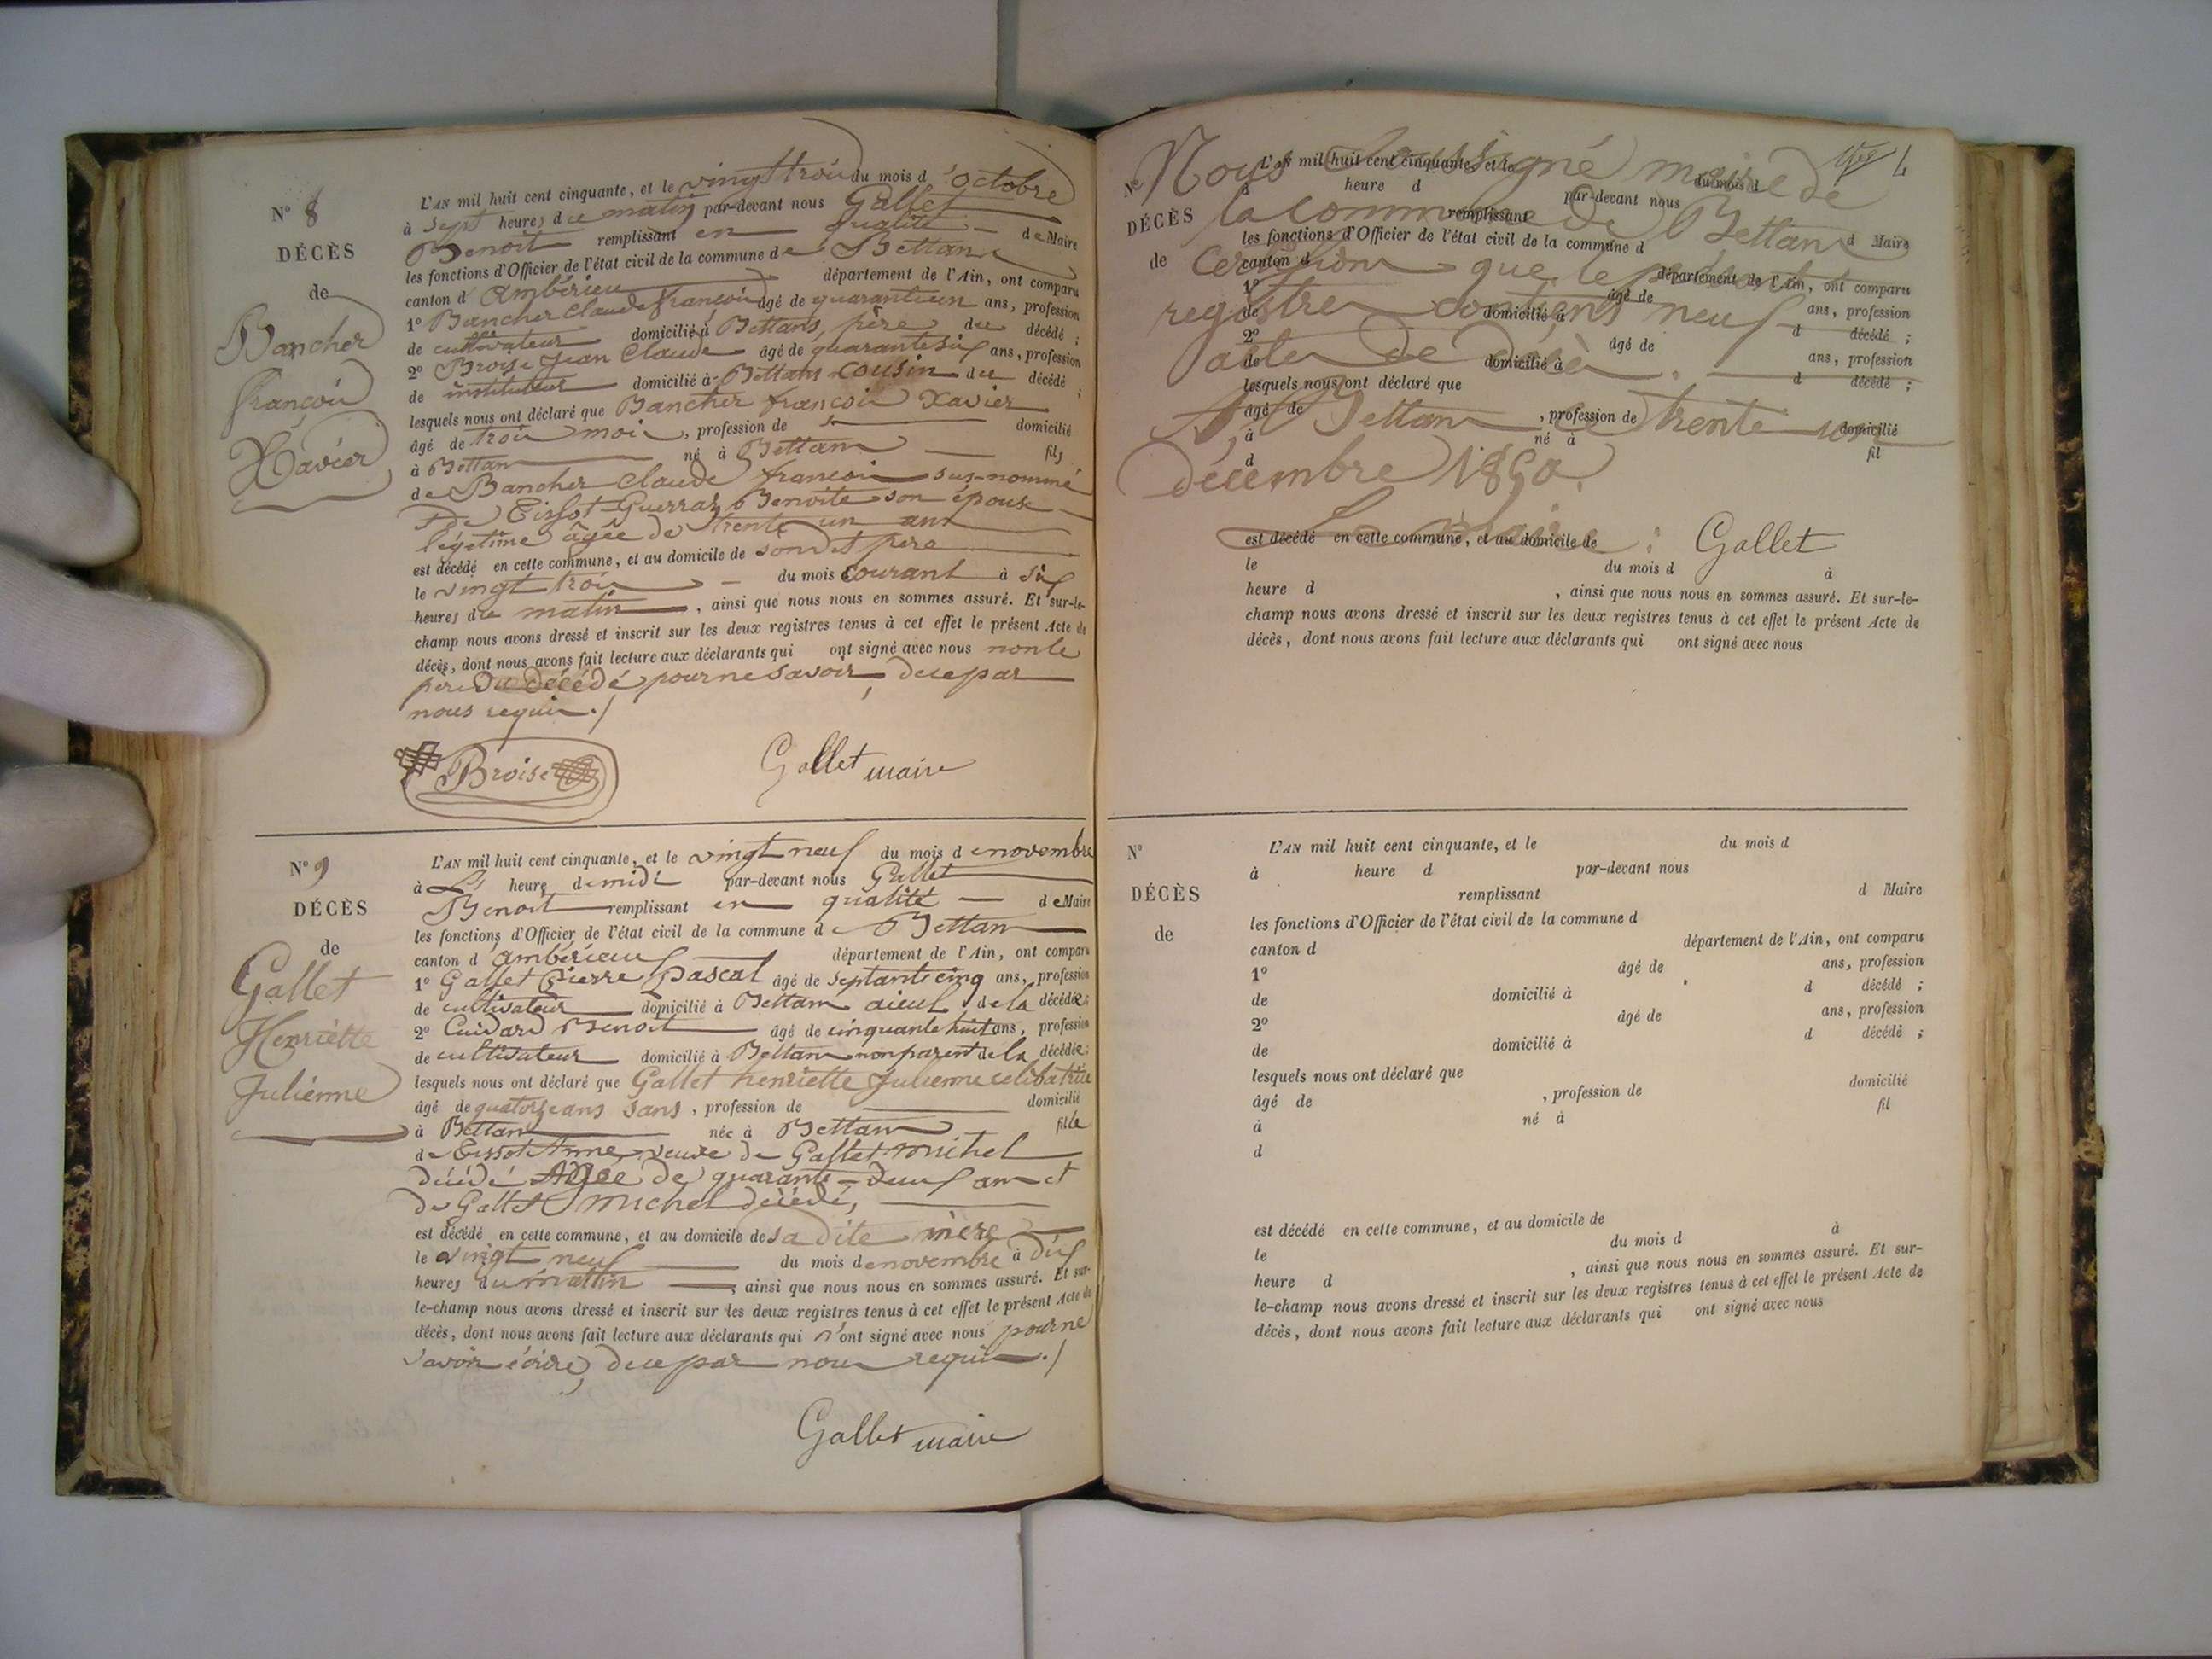 N° 8
DÉCÈS
de
Bancher
françois
Xavier
L'AN mil huit cent cinquante, et le vingt trois du mois d'octobre
à sept heures du matin par-devant nous Gallet
Benoit remplissant en qualité de Maire
les fonctions d'Officier de l'état civil de la commune de Bettans
canton d'ambérieu département de l'Ain, ont comparu
1° Bancher Claude françois âgé de quarante un ans, profession
de cultivateur domicilié à Bettans, père du décédé ;
2° Broise Jean Claude âgé de quarante six ans, profession
de instituteur domicilié à Bettans cousin du décédé ;
lesquels nous ont déclaré que Bancher françois Xavier
âgé de trois mois, profession de domicilié
à Bettans né à Bettans fils
de Bancher Claude françois sus-nommé
& de Tissot Guerraz Benoite son épouse
légitime âgée de trente un ans
est décédé en cette commune, et au domicile de son dit père
le vingt trois du mois courant à six
heures du matin, ainsi que nous nous en sommes assuré. Et sur-le-
champ nous avons dressé et inscrit sur les deux registres tenus à cet effet le présent Acte de
décès, dont nous avons fait lecture aux déclarants qui ont signé avec nous non le
père du décédé pour ne savoir, de ce par
nous requis ./
Broise
Gallet maire
N° 9
DÉCÈS
de
Gallet
Henriette
Julienne
L'AN mil huit cent cinquante, et le vingt neuf du mois de novembre
à heure de midi par-devant nous Gallet
Benoit remplissant en qualité de Maire
les fonctions d'Officier de l'état civil de la commune de Bettans
canton d'ambérieux département de l'Ain, ont comparu
1° Gallet Pierre Pascal âgé de septante cinq ans, profession
de cultivateur domicilié à Bettans aieul de la décédée ;
2° Cuidard Benoit âgé de cinquante huit ans, profession
de cultivateur domicilié à Bettans non parent de la décédée ;
lesquels nous ont déclaré que Gallet henriette Julienne celibatrice
âgé de quatorze ans sans, profession de domicilié
à Bettans née à Bettans fille
de Tissot Anne veuve de Gallet michel
décédé Agée de quarante-deux ans et
de Gallet Michel décédé,
est décédé en cette commune, et au domicile de sa dite mère
le vingt neuf du mois de novembre à dix
heures du matin, ainsi que nous nous en sommes assuré. Et sur-
le-champ nous avons dressé et inscrit sur les deux registres tenus à cet effet le présent Acte de
décès, dont nous avons fait lecture aux déclarants qui n'ont signé avec nous pour ne
savoir écrire, de ce par nous requis ./
Gallet maire
Nous soussigné maire de
la commune de Bettans
Certifions que le présent
registre contiens neuf
actes de décès.
A Bettans, le trente un
décembre 1850.
Le Maire : Gallet
N°
DÉCÈS
de
L'AN mil huit cent cinquante, et le du mois d
à heure d par-devant nous
remplissant d Maire
les fonctions d'Officier de l'état civil de la commune d
canton d département de l'Ain, ont comparu
1° âgé de ans, profession
de domicilié à d décédé ;
2° âgé de ans, profession
de domicilié à d décédé ;
lesquels nous ont déclaré que
âgé de , profession de domicilié
à né à fil
d
est décédé en cette commune, et au domicile de
le du mois d à
heure d , ainsi que nous nous en sommes assuré. Et sur-le-
champ nous avons dressé et inscrit sur les deux registres tenus à cet effet le présent Acte de
décès, dont nous avons fait lecture aux déclarants qui ont signé avec nous
N°
DÉCÈS
de
L'AN mil huit cent cinquante, et le du mois d
à heure d par-devant nous
remplissant d Maire
les fonctions d'Officier de l'état civil de la commune d
canton d département de l'Ain, ont comparu
1° âgé de ans, profession
de domicilié à d décédé ;
2° âgé de ans, profession
de domicilié à d décédé ;
lesquels nous ont déclaré que
âgé de , profession de domicilié
à né à fil
d
est décédé en cette commune, et au domicile de
le du mois d à
heure d , ainsi que nous nous en sommes assuré. Et sur-
le-champ nous avons dressé et inscrit sur les deux registres tenus à cet effet le présent Acte de
décès, dont nous avons fait lecture aux déclarants qui ont signé avec nous